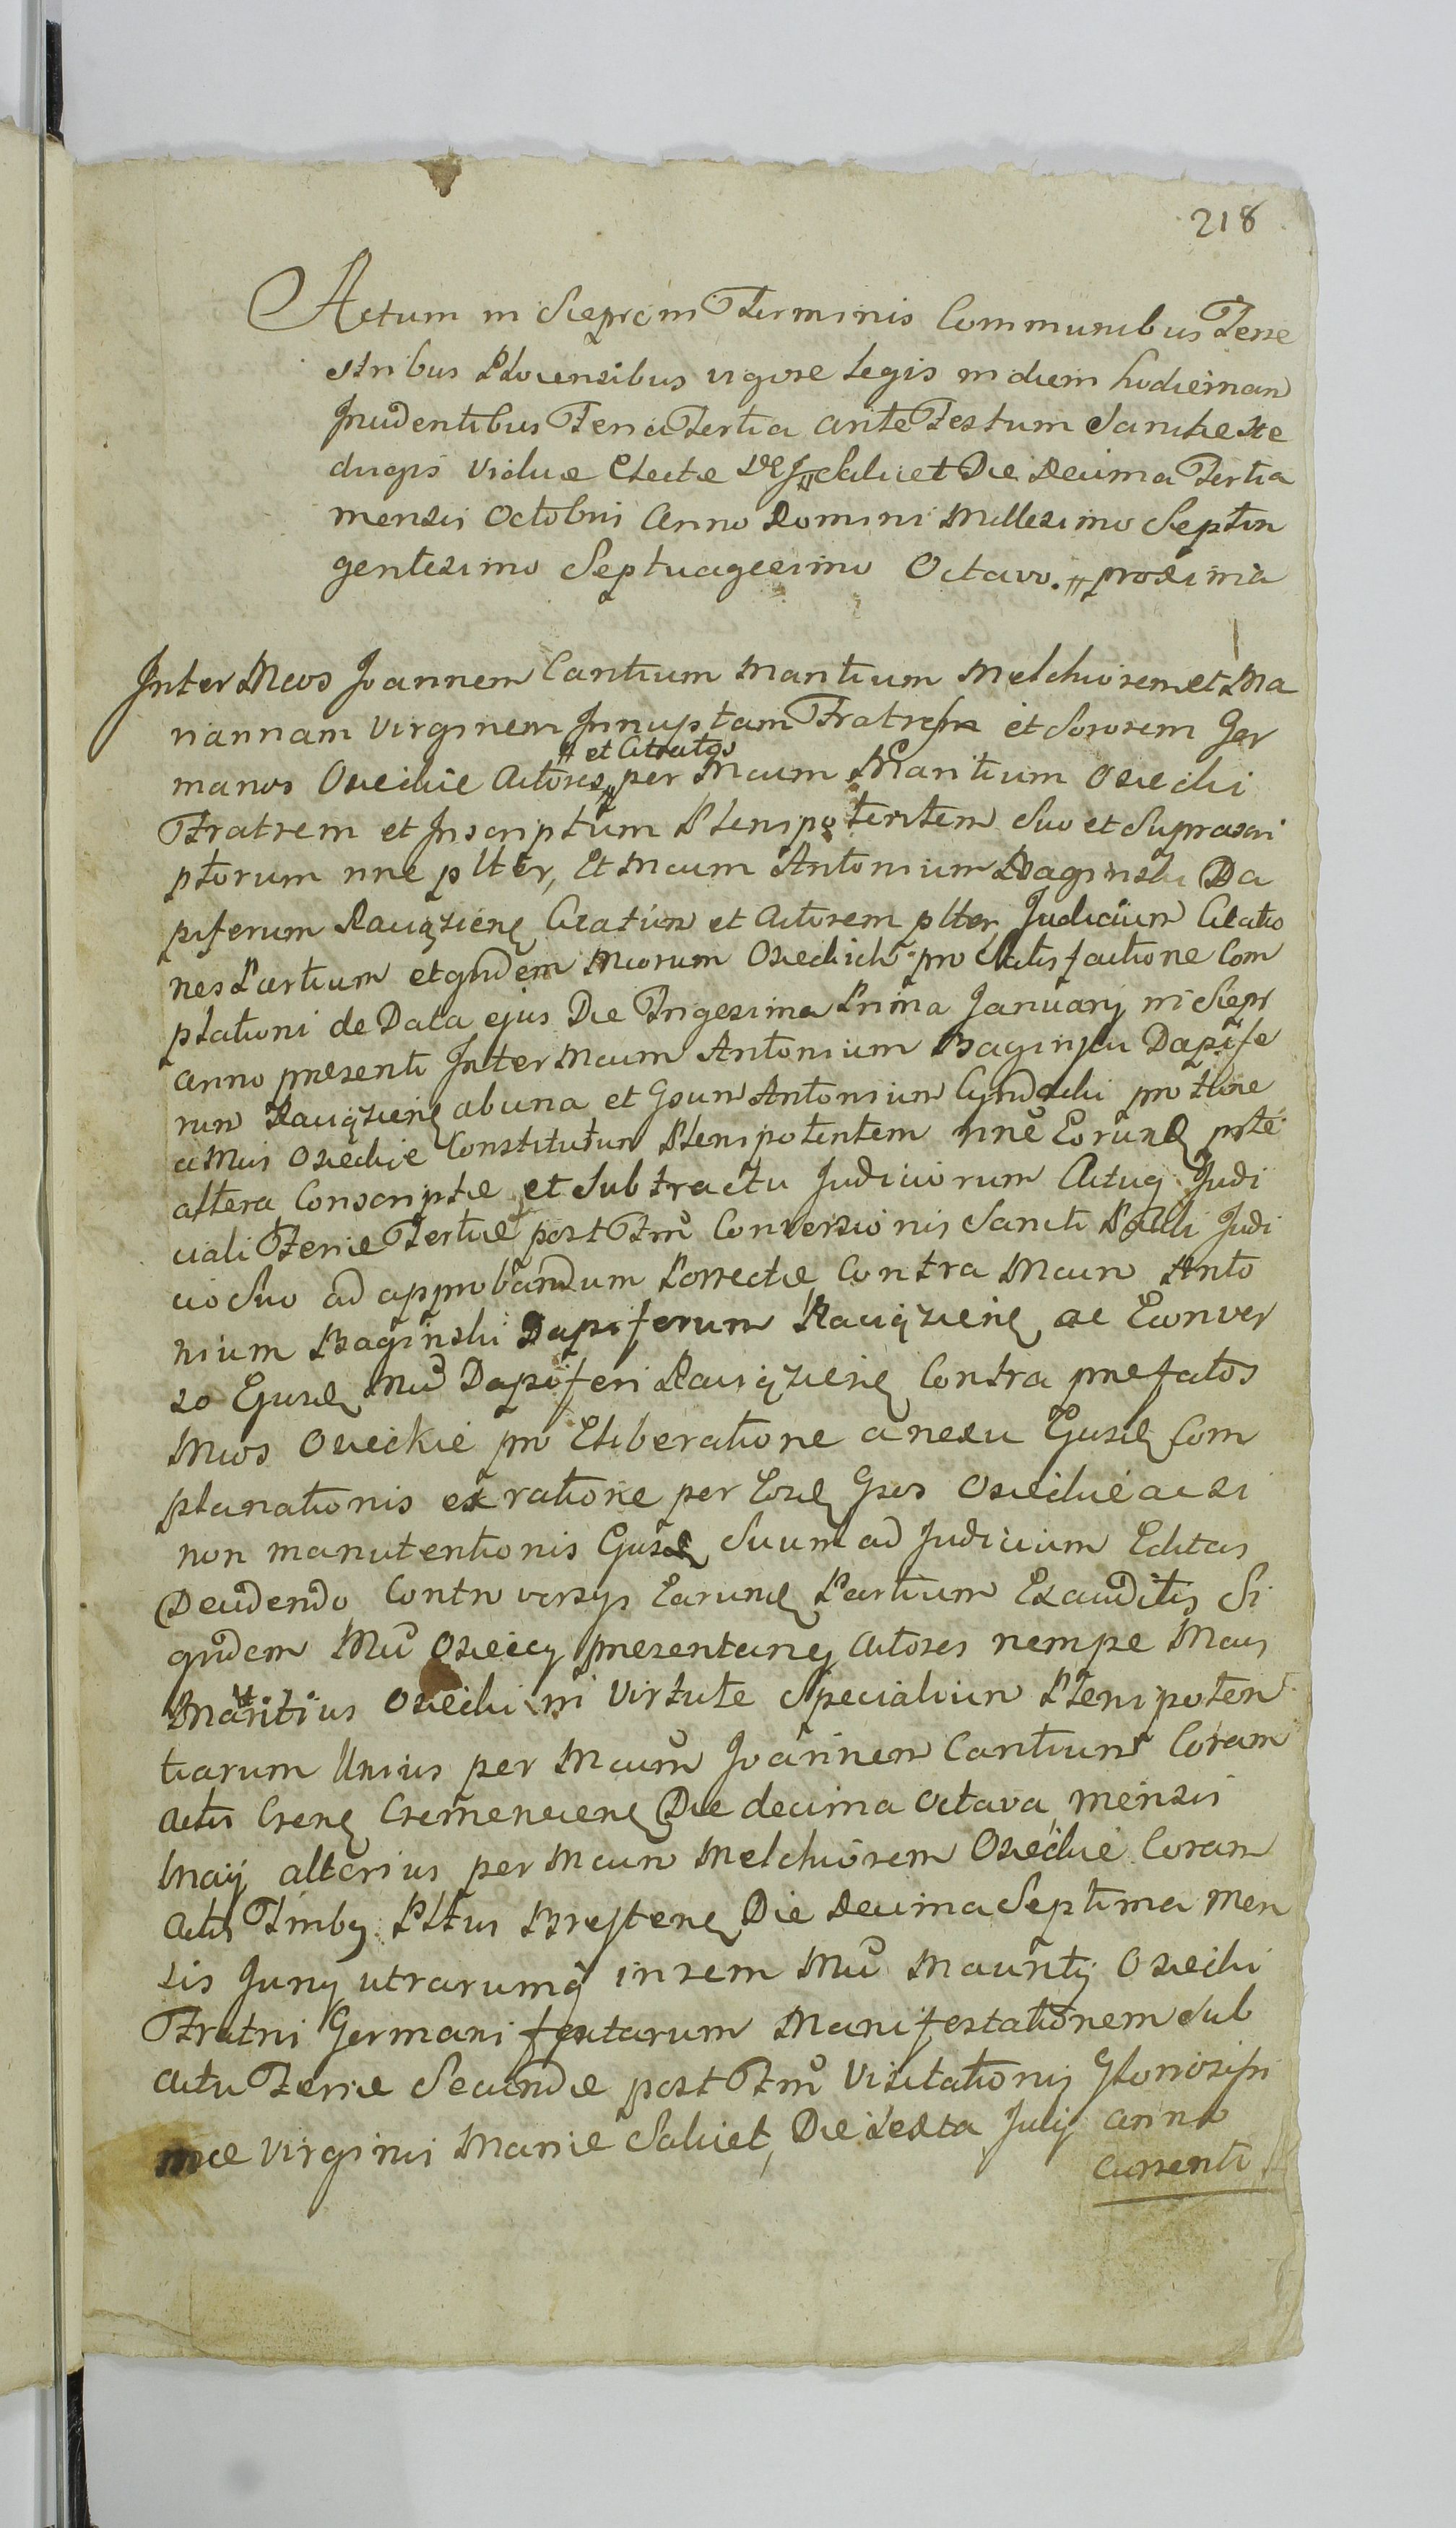 218
Actum in Sieprcin Terminis Communibus Terre
stribus Plocensibus vigore Legis in diem hodiernam
Incidentibus Feria Tertia ante Festum Sanctæ He
dvigis Viduæ Electæ Scilicet Die Decima Tertia
mensis Octobris Anno Domini Millesimo Septin
gentesimo Septuagesimo Octavo. proxima
Inter Mcos Joannem Cantium Mauritium Melchiorem et Ma
riannam Virginem Innuptam Fratres et Sororem Ger
# et Citatos
manos Osieckie Actores per Mcum Mauritium Osiecki
Fratrem et Inscriptum Plenipotentem Suo et Suprascri
ptorum nne plter, Et Mcum Antonium Baginski Da
piferum Raciązien Citatum et Actorem plter Judicium Citatio
nes Partium et quidem Mcorum Osieckich pro Satisfactione Com
plationi de Data ejus Die Trigesima Prima Januarij in Siepr
anno presenti Inter Mcum Antonium Baginski Dapife
rum Raciązien ab una et Gsum Antonium Cyndacki pro tunc
a Mcis Osieckie Constitutum Plenipotentem nne Eorund pte
altera Conscriptæ et Sub tractu Judiciorum Actuq Judi
ciali Feriæ Tertiæ post Ftm Conversionis Sancti Pauli Judi
cio Suo ad approbandum Porrectæ Contra Mcum Anto
nium Baginski Dapiferum Raciązien ac Econver
so Ejusd Mci Dapiferi Raciązien Contra prefatos
Mcos Osieckie pro Eliberatione a nexu Ejusd Com
planationis ex ratione per Eosd Gsos Osieckie ac si
non manutentionis Ejusd Suum ad Judicium Editas
Decidendo Controversijs Earund Partium Exauditis Si
quidem Mci Osieccy presentaney Actores nempe Mcus
Mauritius Osiecki in Virtute Specialium Plenipoten
tiarum Unius per Mcum Joannem Cantium Coram
Actis Cren Cremenecen Die decima octava mensis
Maij alterius per Mcum Melchiorem Osieckie Coram
Actis Tmby Pltus Bresten Die Decima Septima Men
sis Junij utrarumq in rem Mci Mauritij Osiecki
Fratri Germani factarum Manifestationem Sub
actu Feriæ Secundæ post Ftm Visitationis Gloriosissi
mæ Virginis Mariæ Scilicet, Die Sexta Julij anno
currenti